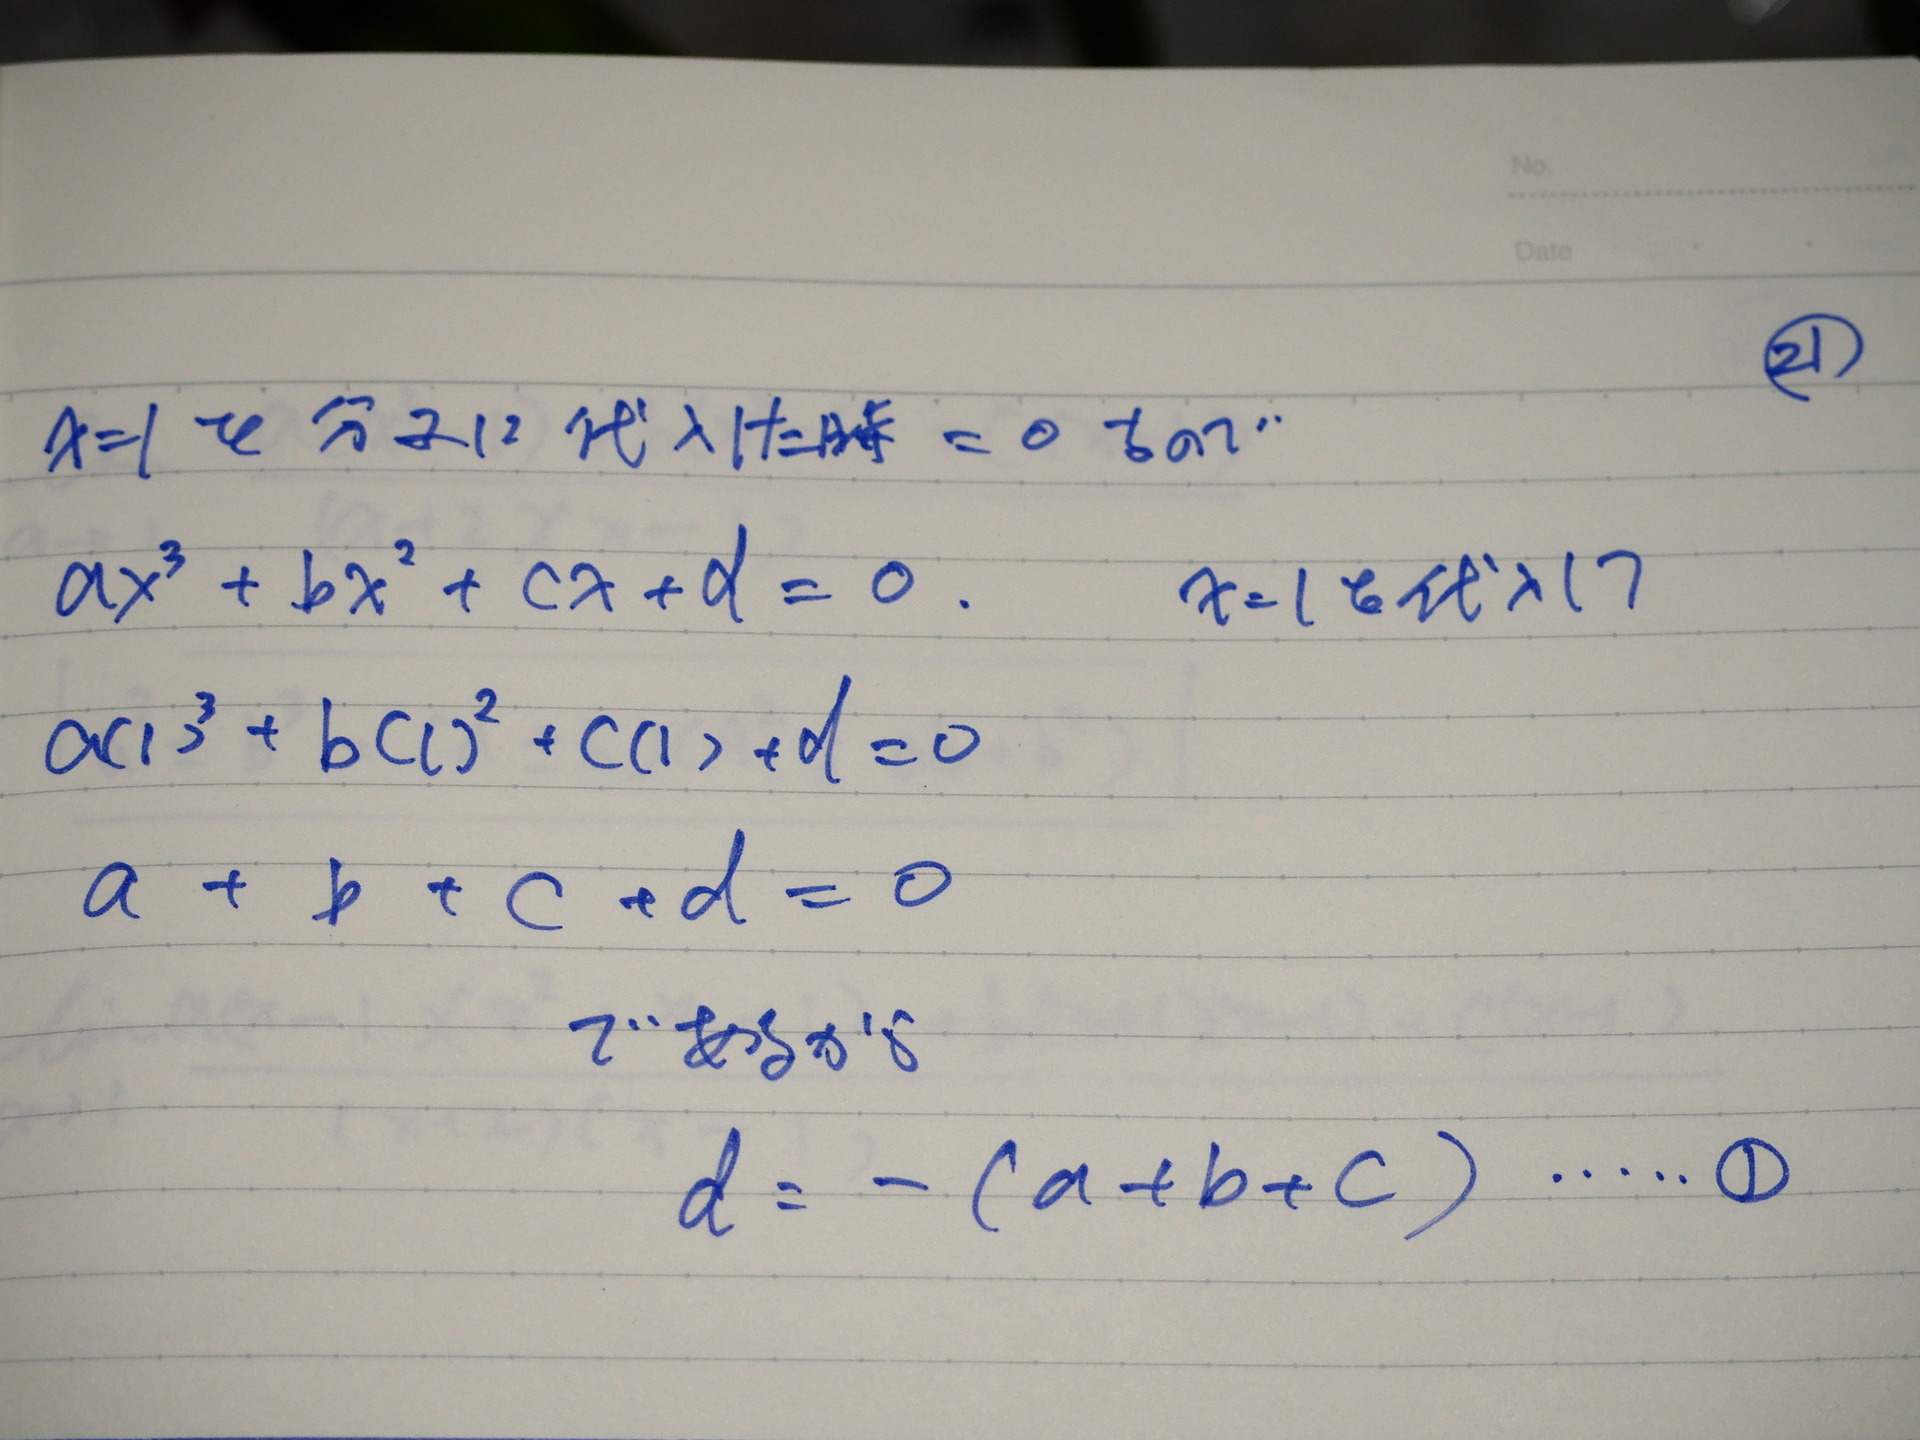 No.
Date
㉑
x=1 を分子に代入した時 = 0 なので
ax³ + bx² + cx + d = 0. x=1を代入して
a(1)³ + b(1)² + c(1) + d = 0
a + b + c + d = 0
であるから
d = - (a+b+c) ...... ①